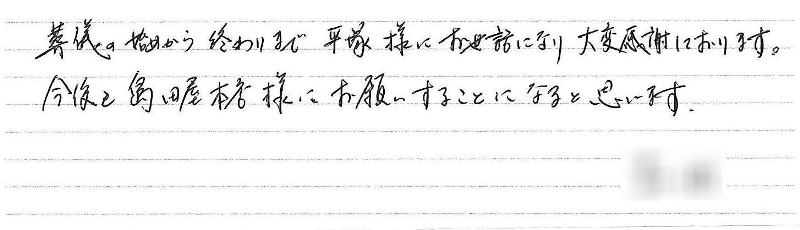 葬儀の始めから終わりまで平塚様にお世話になり大変感謝しております。
今後も島田屋本店様にお願いすることになると思います.